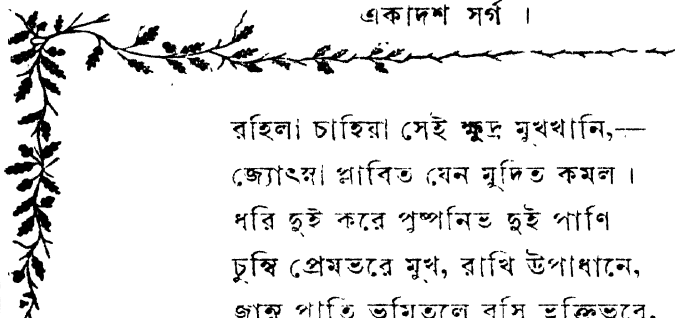 একাদশ সর্গ ।
রহিলা চাহিয়া সেই ক্ষুদ্র মুখখানি,—
জ্যোৎস্না প্লাবিত যেন মুদিত কমল ।
ধরি দুই করে পুষ্পনিভ দুই পাণি
চুম্বি প্রেমভরে মুখ, রাখি উপাধানে,
জানু পাতি ভূমিতলে বসি ভক্তিভরে,